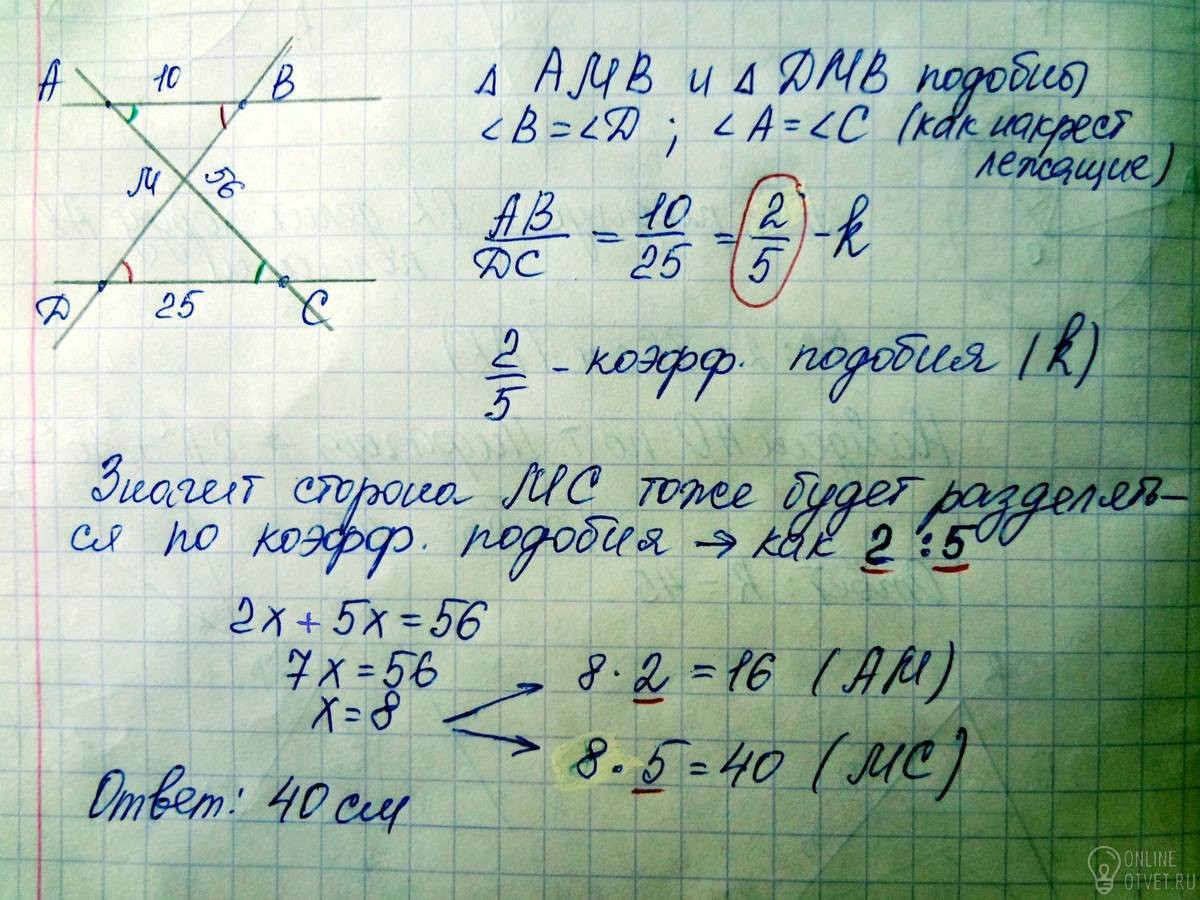 A 10 B
M 56
D 25 C
Δ AMB и Δ DMB подобны
∠B = ∠D ; ∠A = ∠C (как накрест
лежащие)
AB/DC = 10/25 = 2/5 - k
2/5 - коэфф. подобия (k)
Значит сторона MC тоже будет разделять-
ся по коэфф. подобия → как 2 : 5
2x + 5x = 56
7x = 56
x = 8
8 · 2 = 16 (AM)
8 · 5 = 40 (MC)
Ответ: 40 см
ONLINE
OTVET.RU